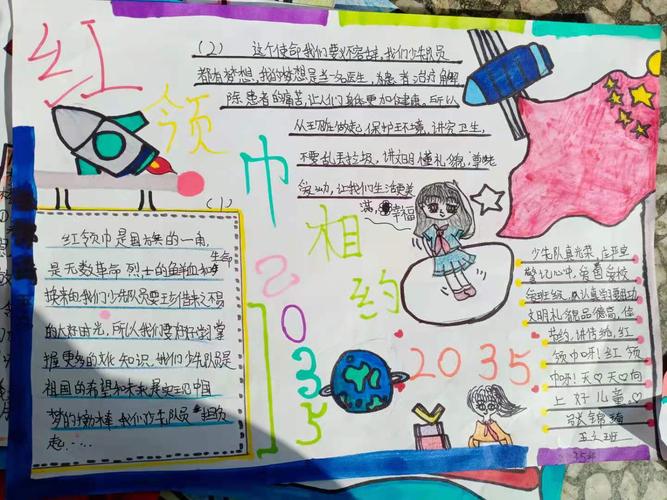 红领巾相约
2035
2035
(1)
红领巾是国旗的一角,
是无数革命烈士的鲜血和生命
换来的我们少先队员要珍惜来之不易
的大好时光,所以我们要好好掌
握更多的文化知识,我们少先队员是
祖国的希望和未来是实现中国
梦的接棒我们少先队员担负
起……
(2) 这个使命我们要义不容辞,我们少先队员
都有梦想,我的梦想是当一名医生,为患者治疗解
除患者的痛苦,让人们身体更加健康,所以
从现在做起,保护环境,讲究卫生,
不要乱丢垃圾,讲文明懂礼貌,尊老
爱幼,让我们生活更美
满,幸福
少先队真光荣,庄严
心中,爱爱校
认真学习
文明礼貌品德高,
讲传统,红
领巾呀!红领
巾呀!天天向
上好儿童。
张锦
五班